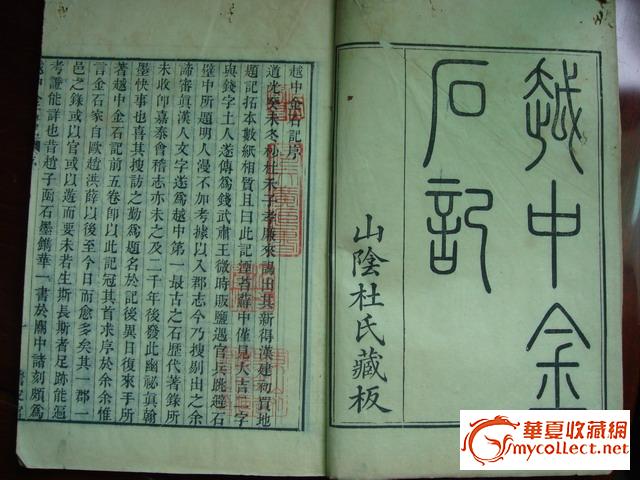 越中金
石記
山陰杜氏藏板
越中金石記序
道光癸未冬杪杜禾子孝廉來謁出其新得漢建初買地
題記拓本數紙相質且曰此記湮蒼蘚中僅見大吉二字
與錢字土人遂傳爲錢武肅王微時販鹽遇官兵跳避石
壁中所題明人漫不加考據以入郡志今乃搜剔出之余
諦審眞漢人文字遂爲越中第一最古之石歷代著錄所
未收卽嘉泰會稽志亦未之及二千年後發此幽祕眞翰
墨快事也喜其搜訪之勤爲題名於記後異日復來手所
著越中金石記前五卷卽以此記冠其首求序於余余惟
言金石家自歐趙洪薛以後至今日而愈多矣其一郡一
邑之錄或以官或以遊而要未若生斯長斯者足跡能遍
考證能詳也昔趙子函石墨鐫華一書於關中諸刻頗爲
華夏收藏網
mycollect.net